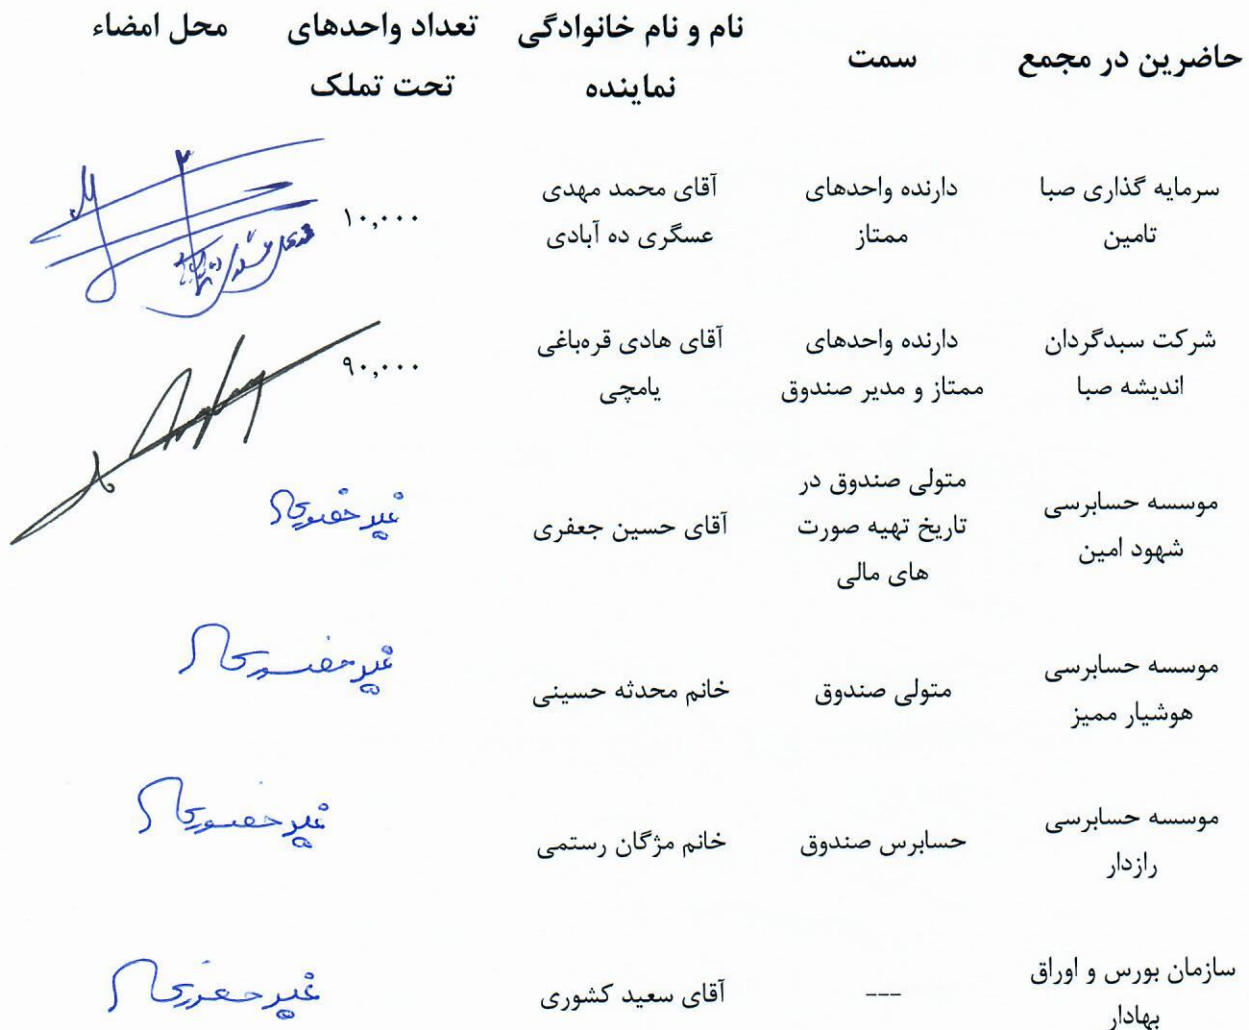 حاضرین در مجمع
سمت
نام و نام خانوادگی
نماینده
تعداد واحدهای
تحت تملک
محل امضاء
سرمایه گذاری صبا
تامین
دارنده واحدهای
ممتاز
آقای محمد مهدی
عسگری ده آبادی
۱۰,۰۰۰
شرکت سبدگردان
اندیشه صبا
دارنده واحدهای
ممتاز و مدیر صندوق
آقای هادی قره‌باغی
یامچی
۹۰,۰۰۰
موسسه حسابرسی
شهود امین
متولی صندوق در
تاریخ تهیه صورت
های مالی
آقای حسین جعفری
غیر حضوری
موسسه حسابرسی
هوشیار ممیز
متولی صندوق
خانم محدثه حسینی
غیر حضوری
موسسه حسابرسی
رازدار
حسابرس صندوق
خانم مژگان رستمی
غیر حضوری
سازمان بورس و اوراق
بهادار
---
آقای سعید کشوری
غیر حضوری